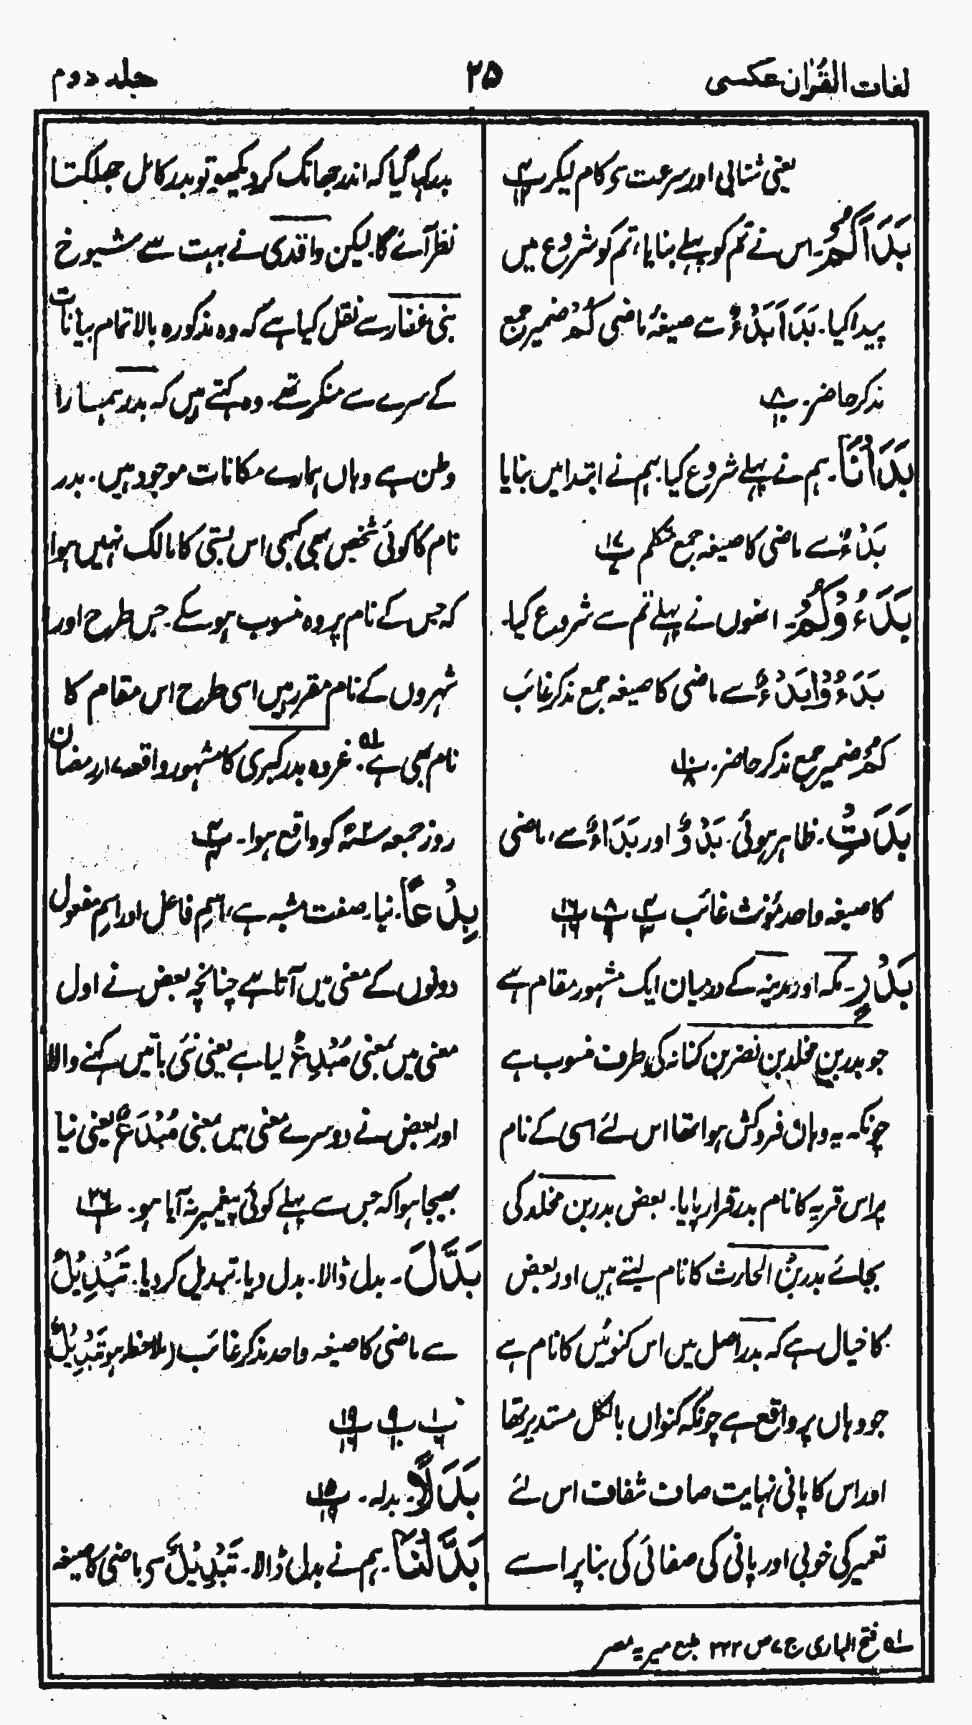 لغات القرٰان عکسی
۲۵
جلد دوم
یعنی شتابی اور سرعت سے کام لیکر
بَدَاَکُمْ۔ اس نے تم کو پہلے بنایا، تم کو شروع میں
پیدا کیا۔ بَدَاَ بَدْءٌ سے صیغۂ ماضی کُمْ ضمیر جمع
مذکر حاضر۔ پ۸ ۱۰
بَدَاْنَا۔ ہم نے پہلے شروع کیا۔ ہم نے ابتدا میں بنایا
بَدْءٌ سے ماضی کا صیغہ جمع متکلم پ۱۷ ۷
بَدَءُوْکُمْ۔ انھوں نے پہلے تم سے شروع کیا۔
بَدَءُوْا بَدْءٌ سے ماضی کا صیغہ جمع مذکر غائب
کُمْ ضمیر جمع مذکر حاضر۔ پ۱۰ ۸
بَدَتْ۔ ظاہر ہوئی۔ بَدْوٌ اور بَدَاءٌ سے، ماضی
کا صیغہ واحد مؤنث غائب پ۴ ۳ پ۸ ۹ پ۱۶ ۱۶
بَدْرٍ۔ مکہ اور مدینہ کے درمیان ایک مشہور مقام ہے
جو بدر بن مخلد بن نضر بن کنانہ کی طرف منسوب ہے
چونکہ یہ وہاں فروکش ہوا تھا اس لئے اسی کے نام
پر اس قریہ کا نام بدر قرار پایا۔ بعض بدر بن مخلد کی
بجائے بدر بن الحارث کا نام لیتے ہیں اور بعض
کا خیال ہے کہ بدر اصل میں اس کنوئیں کا نام ہے
جو وہاں پر واقع ہے چونکہ کنواں بالکل مستدیر تھا
اور اس کا پانی نہایت صاف شفاف اس لئے
تعمیر کی خوبی اور پانی کی صفائی کی بنا پر اسے
بدر کہا گیا کہ اندر جھانک کر دیکھیے تو بدر کامل جھلکتا
نظر آئے گا۔ لیکن واقدی نے بہت سے شیوخ
بنی غفار سے نقل کیا ہے کہ وہ مذکورہ بالا تمام بیانات
کے سرے سے منکر تھے۔ وہ کہتے ہیں کہ بدر ہمارا
وطن ہے وہاں ہمارے مکانات موجود ہیں۔ بدر
نام کا کوئی شخص بھی کبھی اس بستی کا مالک نہیں ہوا
کہ جس کے نام پر وہ منسوب ہو سکے۔ جس طرح اور
شہروں کے نام مقرر ہیں اسی طرح اس مقام کا
نام بھی ہے لہ۔ غزوہ بدر کبری کا مشہور واقعہ ۱۷ رمضان
روز جمعہ ۲ھ کو واقع ہوا۔ پ۴ ۴
بِدْعًا۔ نیا۔ صفت مشبہ ہے، اسم فاعل اور اسم مفعول
دونوں کے معنی میں آتا ہے چنانچہ بعض نے اول
معنی میں بمعنی مُبْدِعٌ لیا ہے یعنی نئی باتیں کہنے والا
اور بعض نے دوسرے معنی میں بمعنی مُبْدَعٌ یعنی نیا
بھیجا ہوا کہ جس سے پہلے کوئی پیغمبر نہ آیا ہو۔ پ۲۶ ۱
بَدَّلَ۔ بدل ڈالا۔ بدل دیا۔ تبدیل کر دیا۔ تَبْدِیْلٌ
سے ماضی کا صیغہ واحد مذکر غائب (ملاحظہ ہو تَبْدِیْلٌ)
پ۱ ۶ پ۹ ۱۰ پ۱۹ ۱۶
بَدَلًا۔ بدلہ۔ پ۱۵ ۱۹
بَدَّلْنَا۔ ہم نے بدل ڈالا۔ تَبْدِیْلٌ سے ماضی کا صیغہ
لہ فتح الباری ج ۷ ص ۲۲۲ طبع میریہ مصر